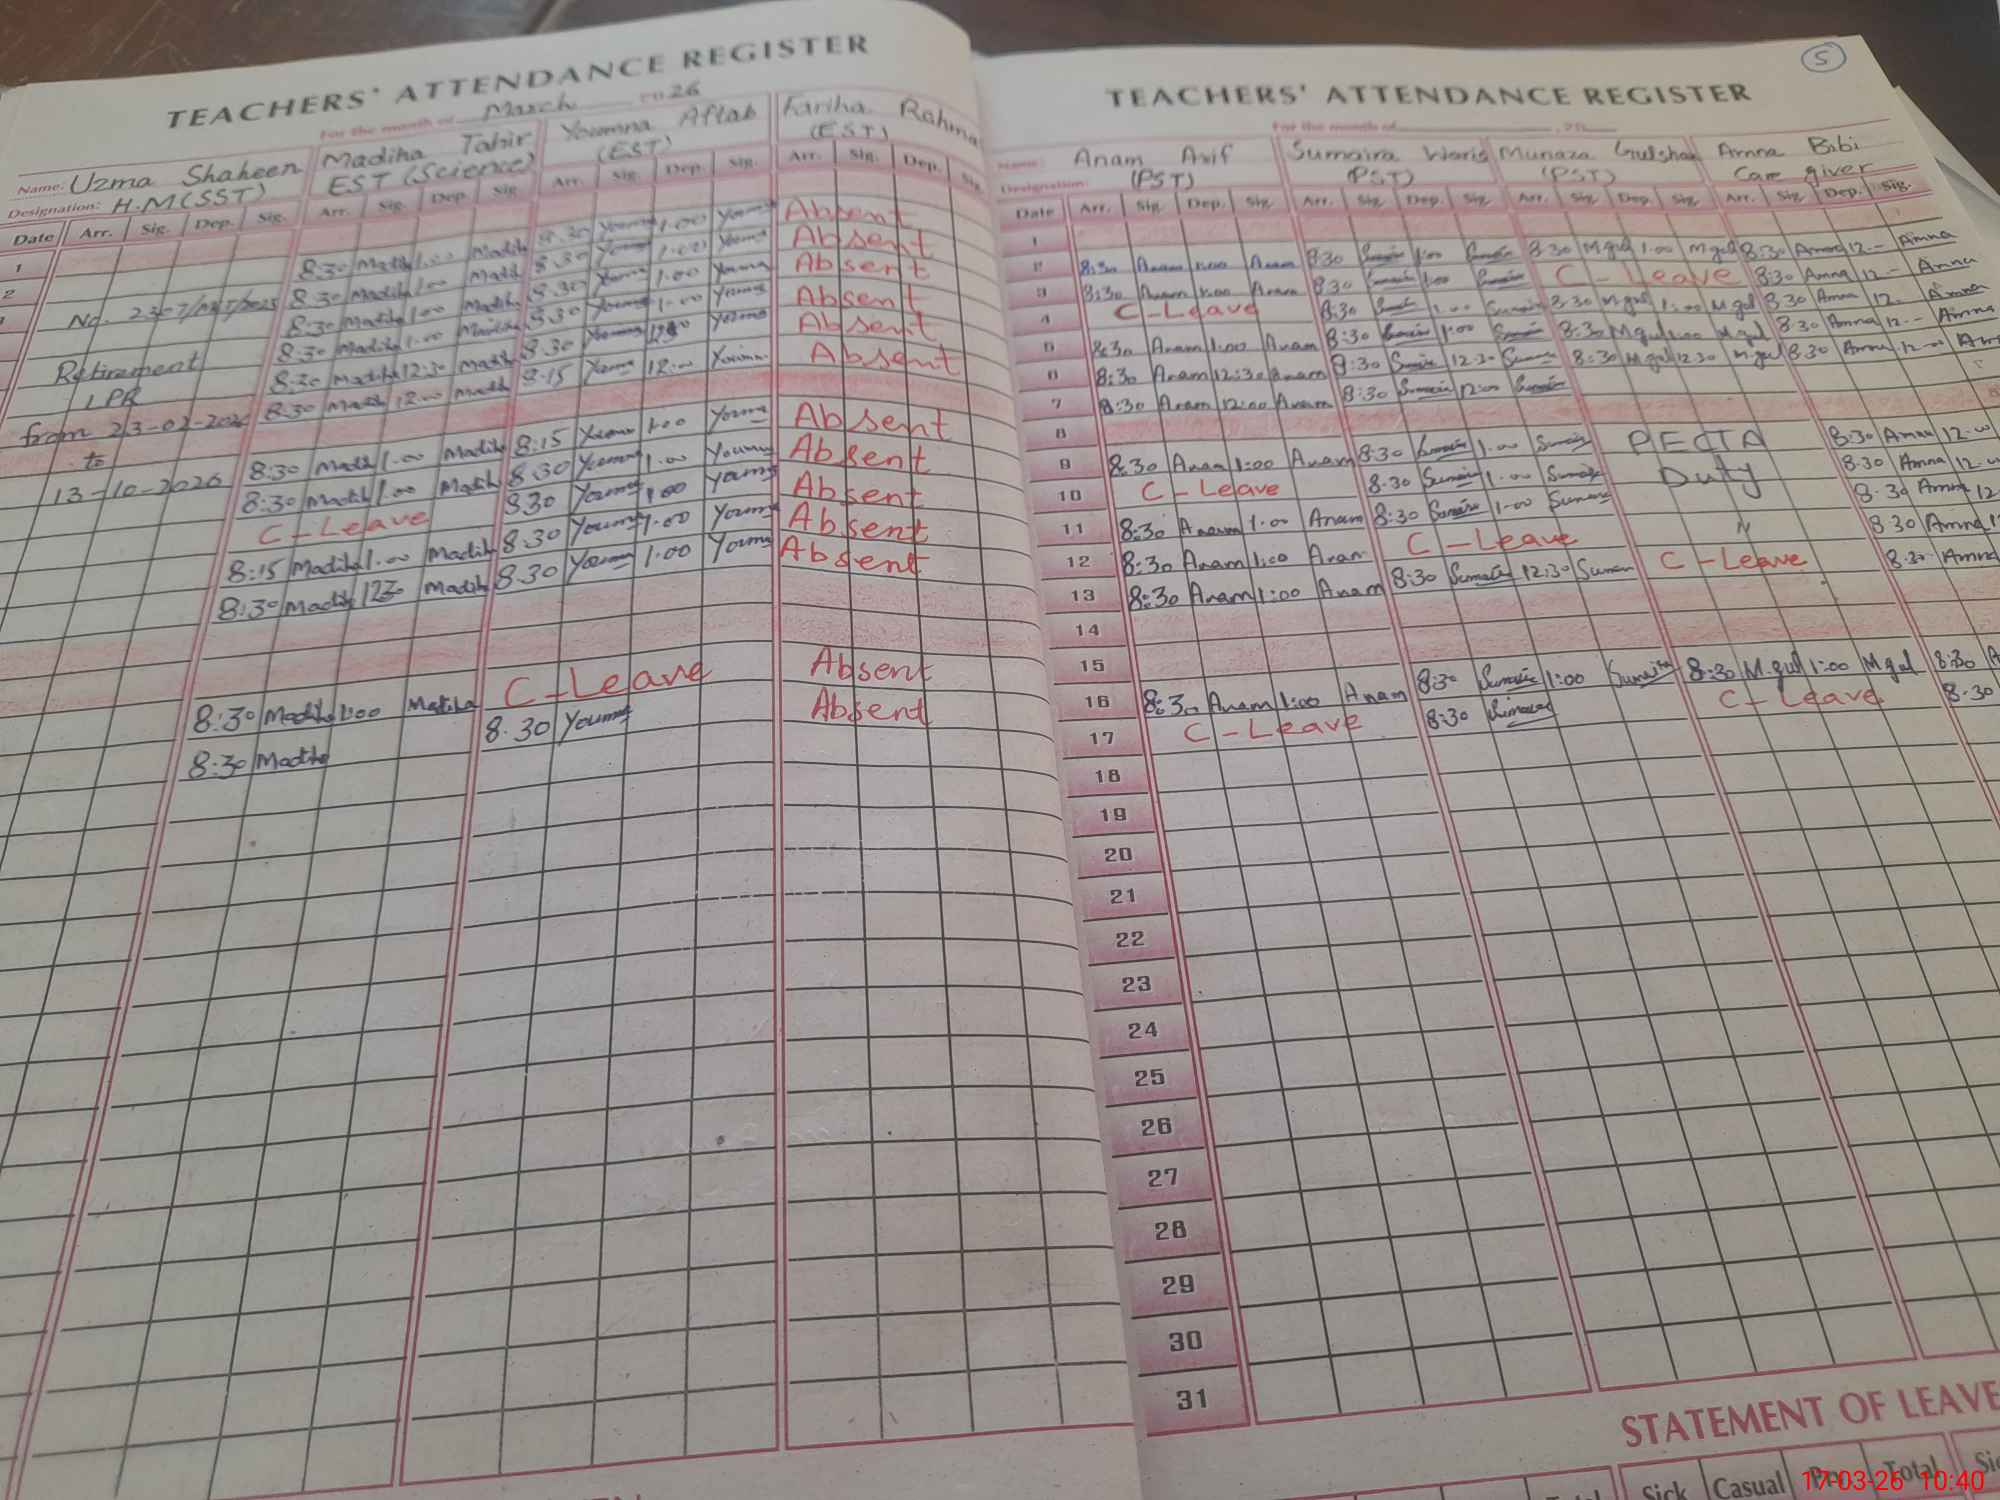 TEACHERS' ATTENDANCE REGISTER
For the month of March 2026
Name: Uzma Shaheen Madiha Tahir Youmna Aftab Fariha Rahma
Designation: H.M(SST) EST (Science) (EST) (EST)
Date Arr. Sig. Dep. Sig. Arr. Sig. Dep. Sig. Arr. Sig. Dep. Sig. Arr. Sig. Dep. Sig.
1
2 8:30 Madiha 1:00 Madiha 8:30 Youmna 1:00 Youmna Absent
8:30 Madiha 1:00 Madiha 8:30 Youmna 1:00 Youmna Absent
8:30 Madiha 1:00 Madiha 8:30 Youmna 1:00 Youmna Absent
Retirement 8:30 Madiha 1:00 Madiha 8:30 Youmna 1:00 Youmna Absent
LPR 8:30 Madiha 12:30 Madiha 8:30 Youmna Youmna Absent
from 23-02-2026 8:30 Madiha 12:00 Madiha 8:15 Youmna 12:00 Youmna Absent
to
13-10-2026 8:30 Madiha 1:00 Madiha 8:15 Youmna 1:00 Youmna Absent
8:30 Madiha 1:00 Madiha 8:30 Youmna 1:00 Youmna Absent
C-Leave 8:30 Youmna 1:00 Youmna Absent
8:15 Madiha 1:00 Madiha 8:30 Youmna 1:00 Youmna Absent
8:30 Madiha 12:30 Madiha 8.30 Youmna 1:00 Youmna Absent
8:30 Madiha 1:00 Madiha C-Leave Absent
8:30 Madiha 8.30 Youmna Absent
5
TEACHERS' ATTENDANCE REGISTER
For the month of , 20
Name: Anam Asif Sumaira Waris Munaza Gulshan Amna Bibi
Designation: (PST) (PST) (PST) Care giver
Date Arr. Sig. Dep. Sig. Arr. Sig. Dep. Sig. Arr. Sig. Dep. Sig. Arr. Sig. Dep. Sig.
1
2 8:30 Anam 1:00 Anam 8:30 Sumaira 1:00 Sumaira 8:30 M.gul 1:00 M.gul 8:30 Amna 12.- Amna
3 8:30 Anam 1:00 Anam 8:30 Sumaira 1:00 Sumaira C-Leave 8:30 Amna 12- Amna
4 C-Leave 8:30 Sumaira 1:00 Sumaira 8:30 M.gul 1:00 M.gul 8:30 Amna 12.- Amna
5 8:30 Anam 1:00 Anam 8:30 Sumaira 1:00 Sumaira 8:30 M.gul 1:00 M.gul 8:30 Amna 12.- Amna
6 8:30 Anam 12:30 Anam 8:30 Sumaira 12:30 Sumaira 8:30 M.gul 12:30 M.gul 8:30 Amna 12:00 Am
7 8:30 Anam 12:00 Anam 8:30 Sumaira 12:00 Sumaira
8
9 8:30 Anam 1:00 Anam 8:30 Sumaira 1:00 Sumaira PECTA 8:30 Amna 12:00
10 C-Leave 8:30 Sumaira 1:00 Sumaira Duty 8:30 Amna 12:00
11 8:30 Anam 1:00 Anam 8:30 Sumaira 1:00 Sumaira 8:30 Amna 12
12 8:30 Anam 1:00 Anam C-Leave " 8:30 Amna
13 8:30 Anam 1:00 Anam 8:30 Sumaira 12:30 Sumaira C-Leave 8:30 Amna
14
15
16 8:30 Anam 1:00 Anam 8:30 Sumaira 1:00 Sumaira 8:30 M.gul 1:00 M.gul 8:30 A
17 C-Leave 8:30 Sumaira C-Leave 8:30
18
19
20
21
22
23
24
25
26
27
28
29
30
31
STATEMENT OF LEAVE
Total Sick Casual Pre. Total Sic
17-03-26 10:40